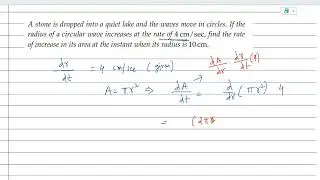 A stone is dropped into a quiet lake and the waves move in circles. If the
radius of a circular wave increases at the rate of 4 cm/sec, find the rate
of increase in its area at the instant when its radius is 10 cm.
dr/dt = 4 cm/sec (given)
dA/dr · dr/dt
A = πr² ⇒ dA/dt = d/dr (πr²) 4
= (2π